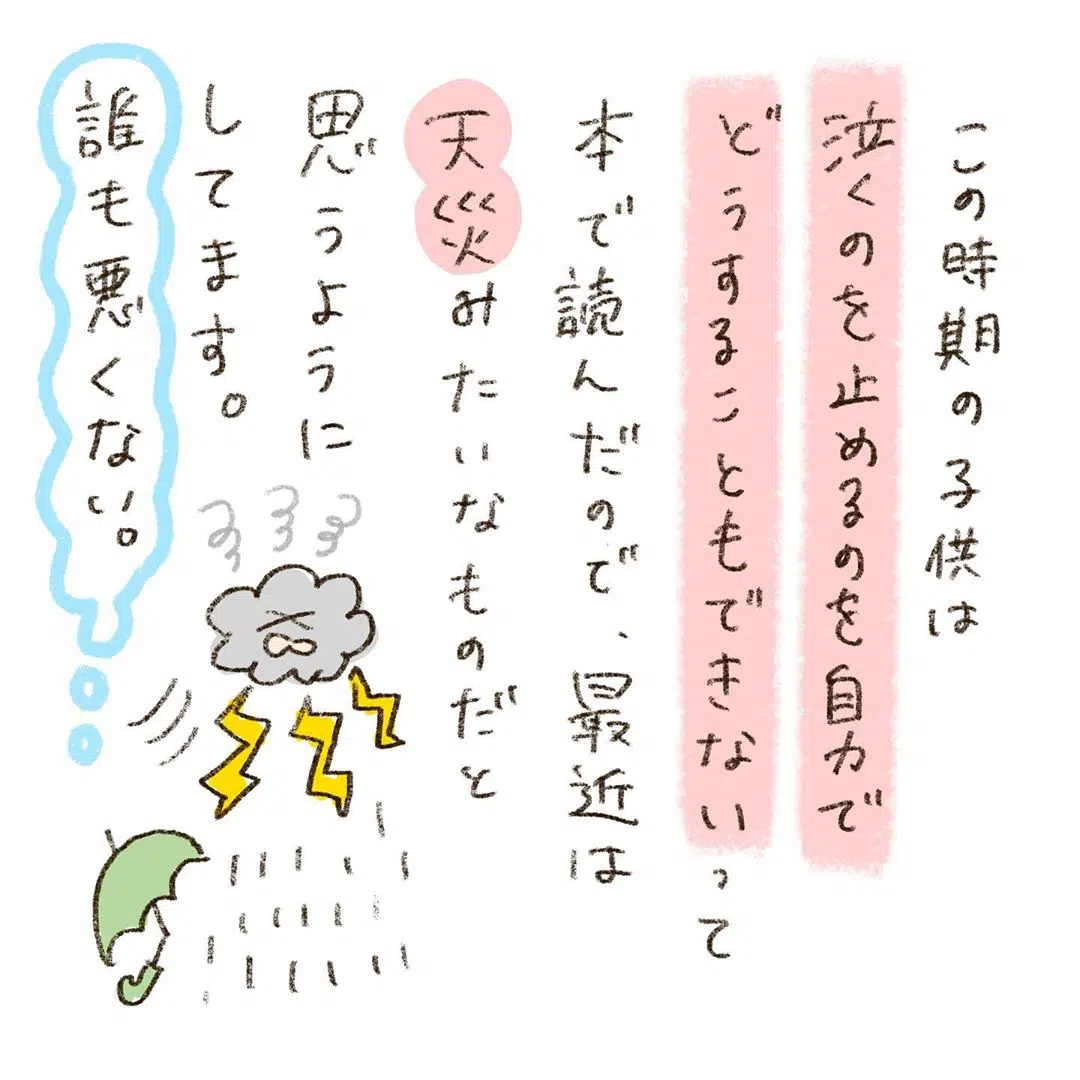 この時期の子供は
泣くのを止めるのを自力で
どうすることもできないって
本で読んだので、最近は
天災みたいなものだと
思うように
してます。
誰も悪くない。